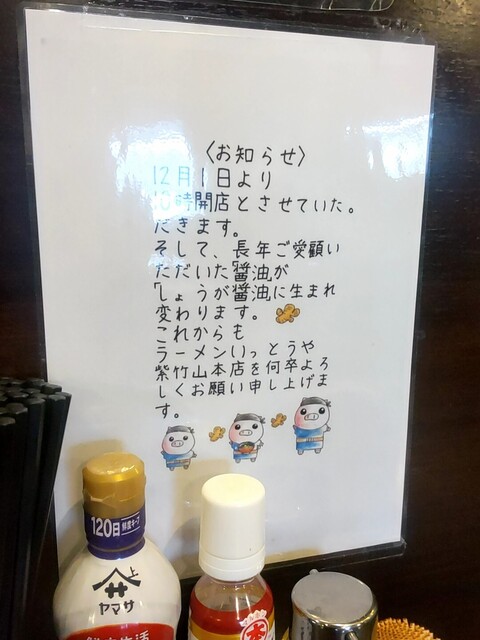 〈お知らせ〉
12月1日より
10時開店とさせていた。
だきます。
そして、長年ご愛顧い
ただいた「醤油」が
「しょうが醤油」に生まれ
変わります。
これからも
ラーメンいっとうや
紫竹山本店を何卒よろ
しくお願い申し上げま
す。
120日
鮮度キープ
上
ヤマサ
鮮度生活
本